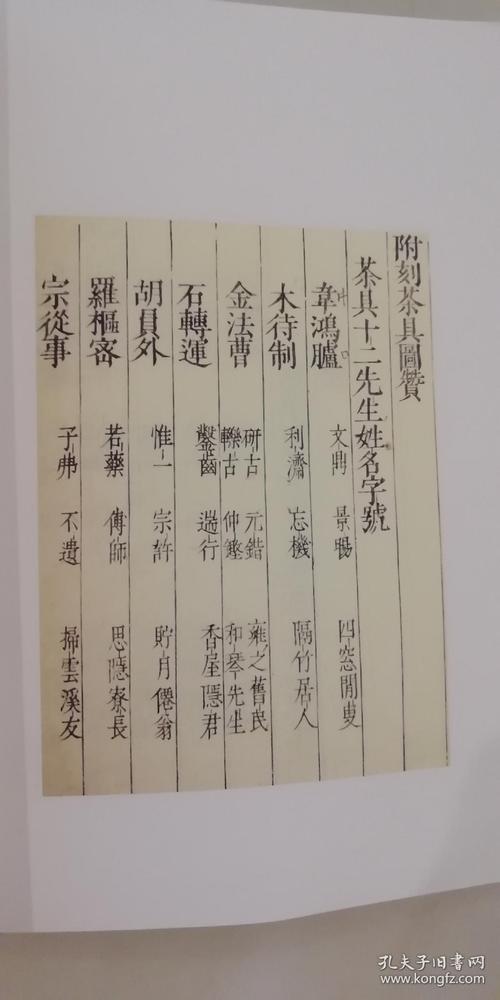 附刻茶具圖贊
茶具十二先生姓名字號
韋鴻臚 文鼎 景暘 四窓閒叟
木待制 利濟 忘機 隔竹居人
金法曹 研古 元鍇 雍之舊民
轢古 仲鏗 和琴先生
石轉運 鑿齒 遄行 香屋隱君
胡員外 惟一 宗許 貯月僊翁
羅樞密 若藥 傳師 思隱寮長
宗從事 子弗 不遺 掃雲溪友
孔夫子旧书网
kongfz.com